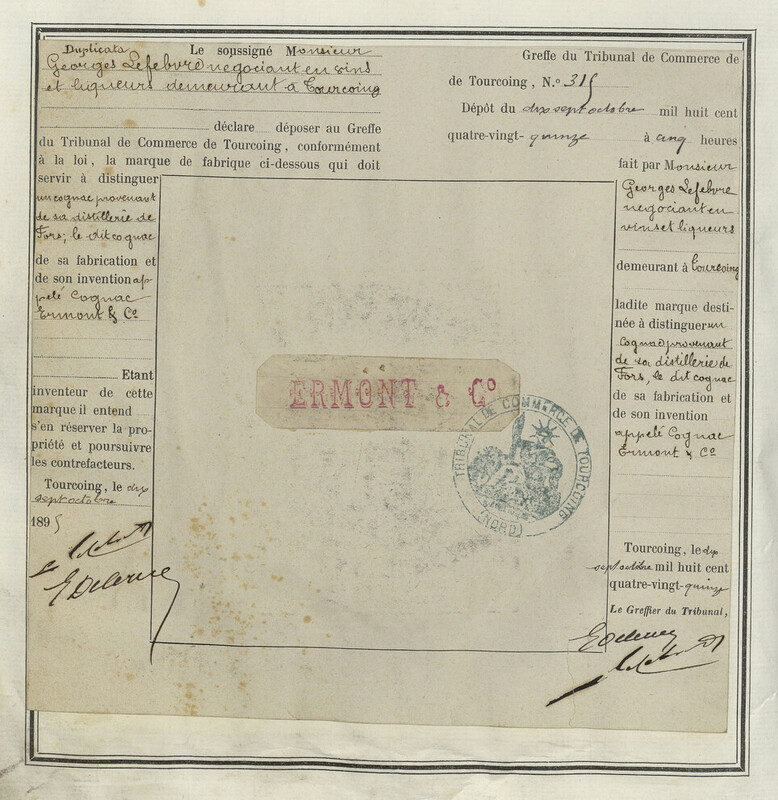 Duplicata Le soussigné Monsieur
Georges Lefebvre negociant en vins
et liqueurs demeurant à Tourcoing
déclare déposer au Greffe
du Tribunal de Commerce de Tourcoing, conformément
à la loi, la marque de fabrique ci-dessous qui doit
servir à distinguer
un cognac provenant
de sa distillerie de
Fors; le dit cognac
de sa fabrication et
de son invention ap
pelé Cognac
Ermont & Co
Etant
inventeur de cette
marque il entend
s'en réserver la pro-
priété et poursuivre
les contrefacteurs.
Tourcoing, le dix
sept octobre
1895
ERMONT & Co
TRIBUNAL DE COMMERCE DE TOURCOING
(NORD)
Greffe du Tribunal de Commerce de
de Tourcoing, N.o 315
Dépôt du dix sept octobre mil huit cent
quatre-vingt-quinze à cinq heures
fait par Monsieur
Georges Lefebvre
negociant en
vins et liqueurs
demeurant à Tourcoing
ladite marque desti-
née à distinguer un
cognac provenant
de sa distillerie de
Fors, le dit cognac
de sa fabrication et
de son invention
appelé Cognac
Ermont & Co
Tourcoing, le dix
sept octobre mil huit cent
quatre-vingt-quinze
Le Greffier du Tribunal,